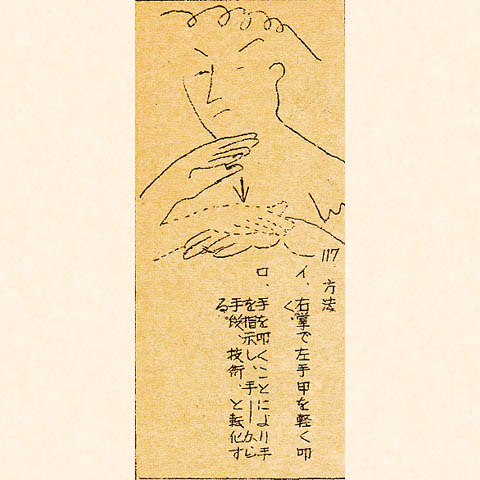 117
方法
イ、右掌で左手甲を軽く叩
く。
ロ、手を叩くことにより手
を指示し、手―から
手段、技術、と転化す
る。